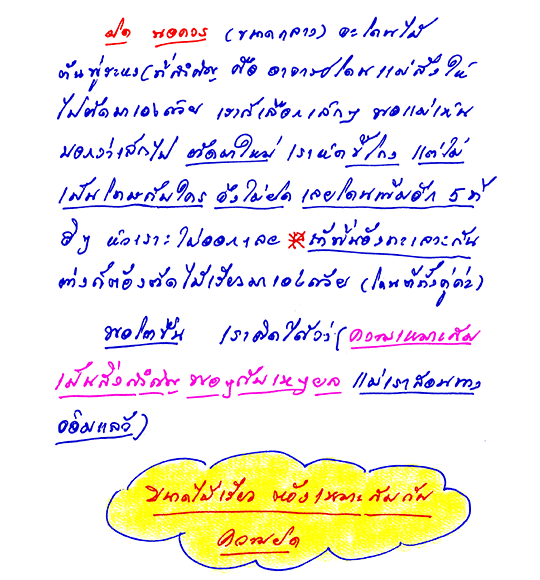 ผิด พอควร (ขนาดกลาง) จะโดนไม้
ต้นพู่ระหง (ที่สำคัญ คือ อาจารย์โดนแม่สั่งให้
ไปตัดมาเองด้วย เราก็เลือกเล็กๆ พอแม่เห็น
บอกว่าเล็กไป ตัดมาใหม่ เราหัดขี้โกง แต่ไม่
เนียนโดนกับใคร จึงไม่ผิด เลยโดนเพิ่มอีก 5 ที
ฮึๆ หัวเราะไม่ออกเลย พี่น้องทะเลาะกัน
ต่างก็ต้องตัดไม้เรียวมาเองด้วย (โดนทั้งคู่ค่ะ)
พอโตขึ้น เราคิดได้ว่า (ความเหมาะสม
เป็นสิ่งสำคัญ พอๆกับเหตุผล แม่เราสอนทาง
อ้อมแล้ว)
ขนาดไม้เรียว ต้องเหมาะสมกับ
ความผิด